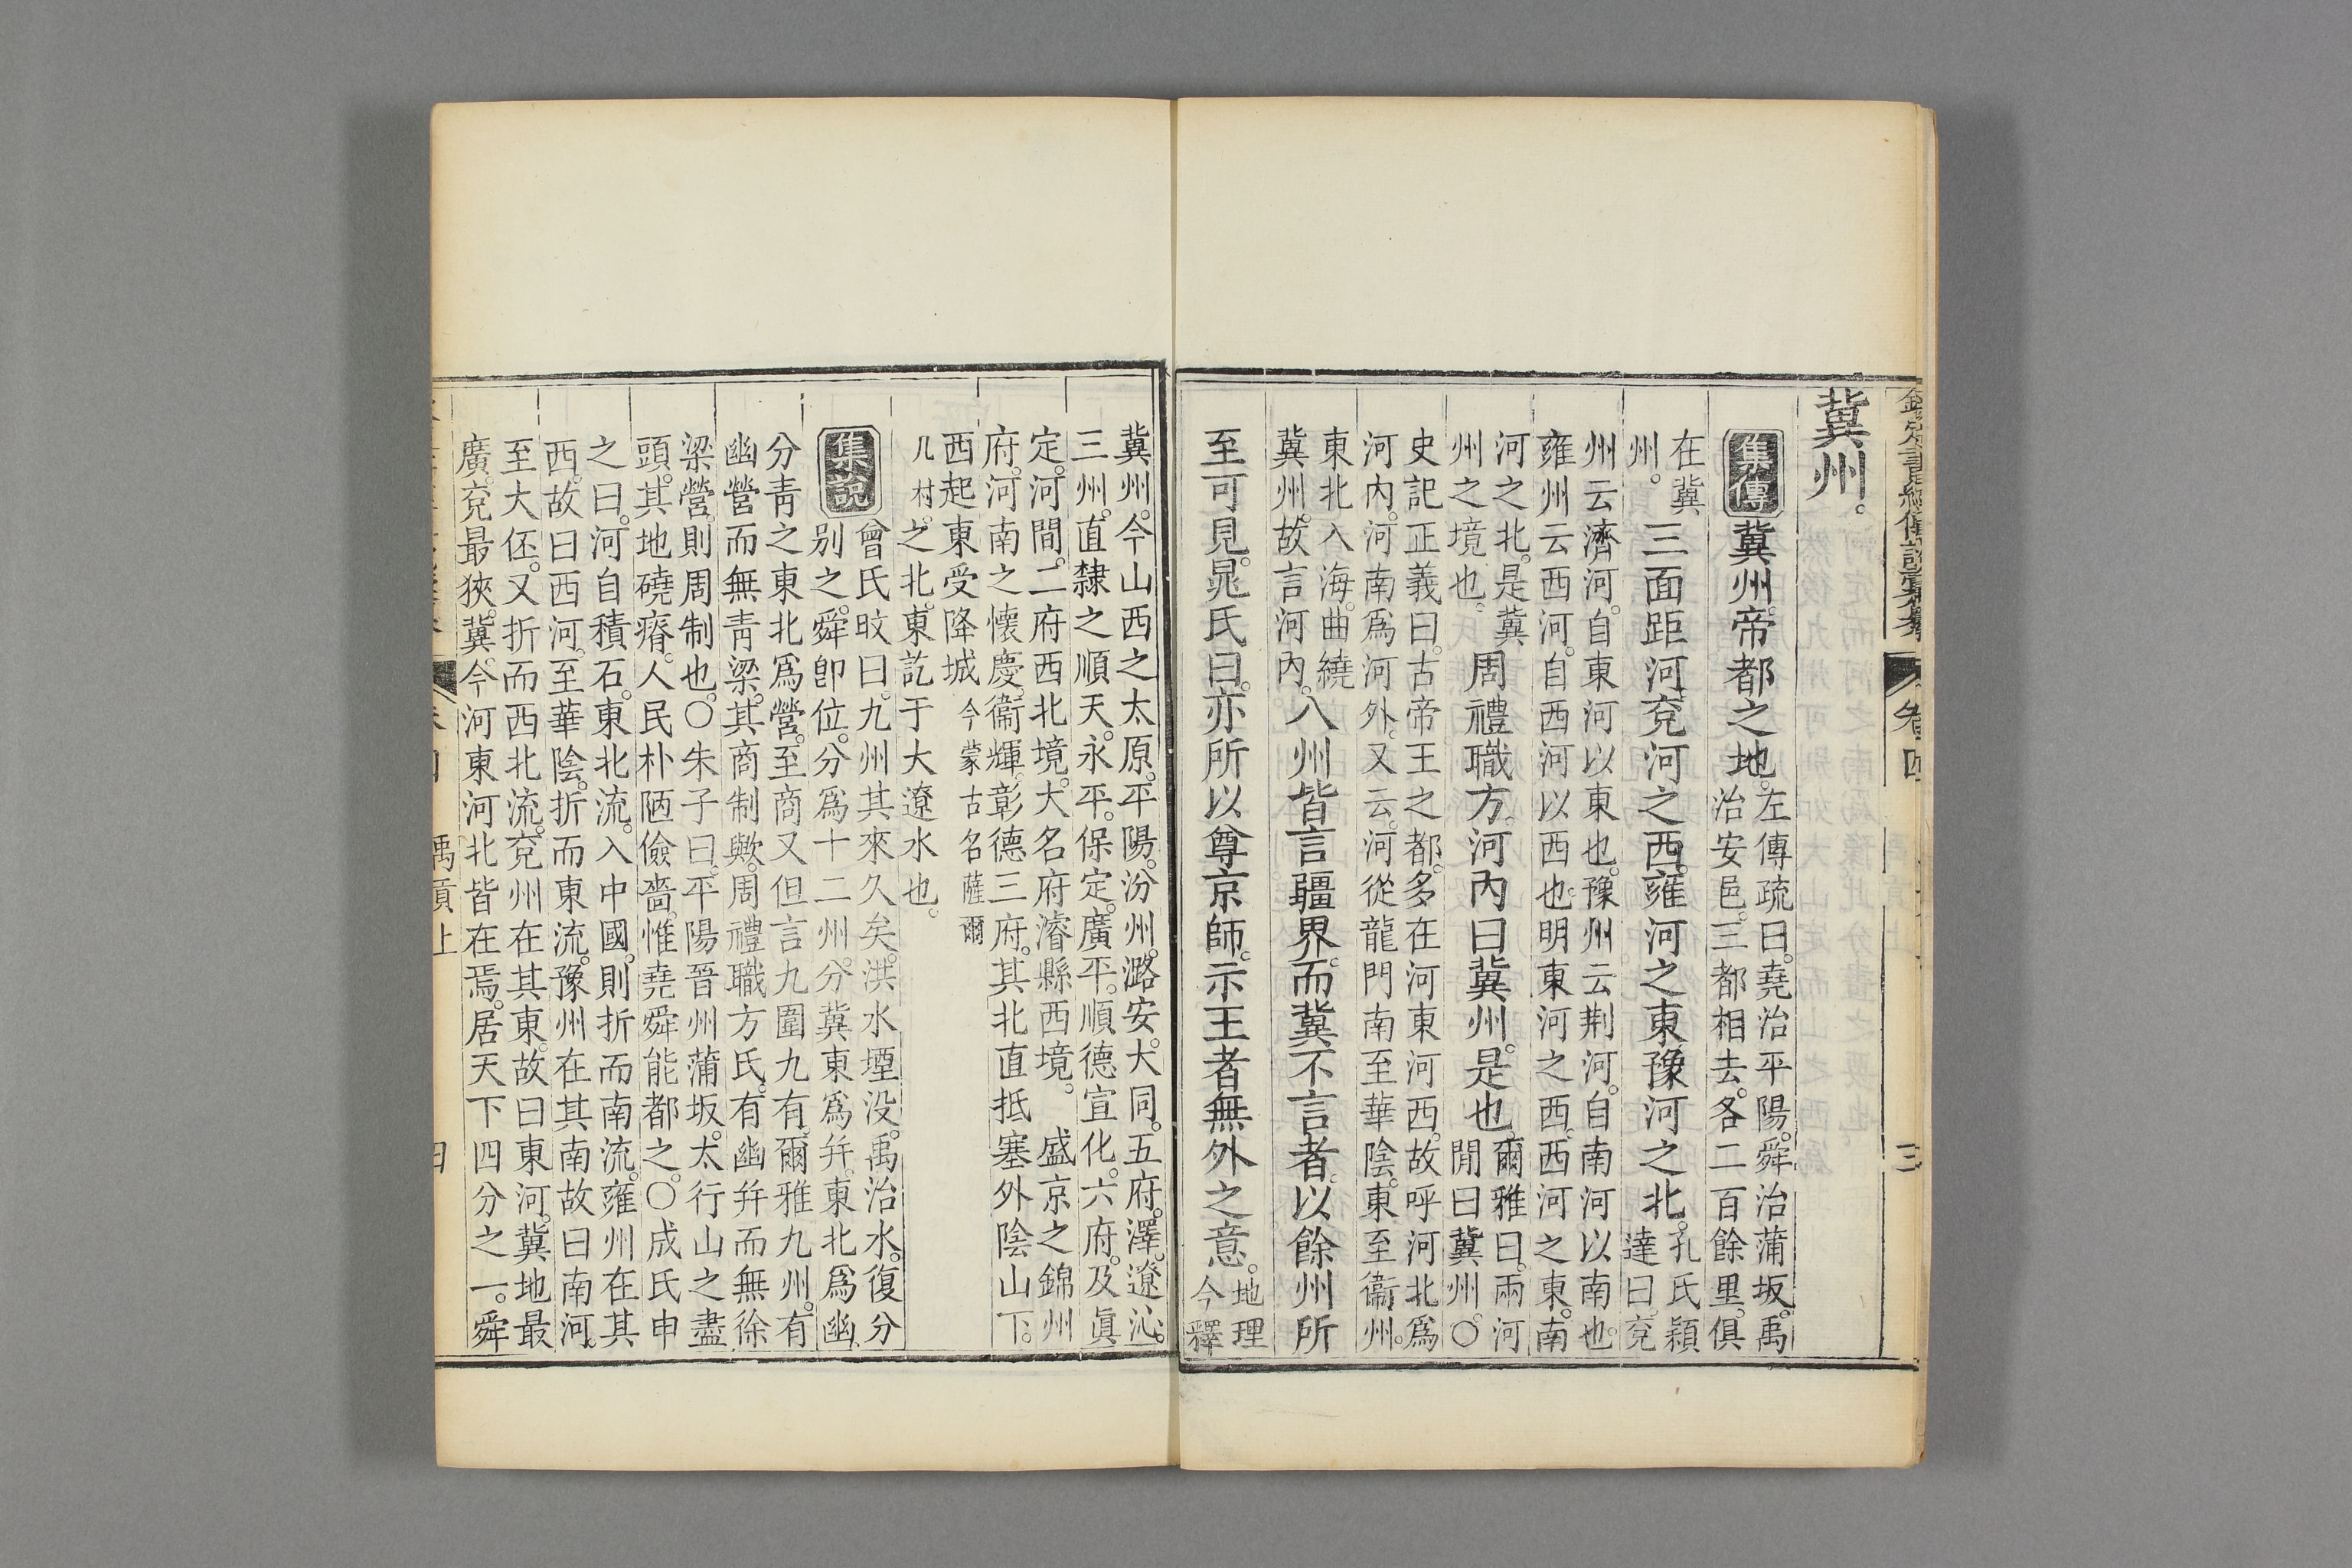 欽定書經傳說彙纂 卷四 三
冀州。
集傳 冀州。帝都之地。左傳疏曰。堯治平陽。舜治蒲坂。禹
治安邑。三都相去。各二百餘里。俱
在冀
州。三面距河。兗河之西。雍河之東。豫河之北。孔氏穎
達曰。兗
州云濟河。自東河以東也。豫州云荆河。自南河以南也。
雍州云西河。自西河以西也。明東河之西。西河之東。南
河之北。是冀
州之境也。周禮職方。河內曰冀州。是也。爾雅曰。兩河
閒曰冀州。〇
史記正義曰。古帝王之都。多在河東河西。故呼河北爲
河內。河南爲河外。又云。河從龍門南至華陰。東至衞州。
東北入海。曲繞
冀州。故言河內。八州皆言疆界。而冀不言者。以餘州所
至可見。晁氏曰。亦所以尊京師。示王者無外之意。地理
今釋
冀州。今山西之太原。平陽。汾州。潞安。大同。五府。澤。遼。沁。
三州。直隸之順天。永平。保定。廣平。順德。宣化。六府。及眞
定。河間。二府西北境。大名府濬縣西境。盛京之錦州
府。河南之懷慶。衞輝。彰德三府。其北直抵塞外陰山下。
西起東受降城今蒙古名薩爾
几村。之北。東訖于大遼水也。
集說 曾氏旼曰。九州其來久矣。洪水堙没。禹治水。復分
别之。舜卽位。分爲十二州。分冀東爲幷。東北爲幽。
分靑之東北爲營。至商又但言九圍九有。爾雅九州。有
幽營而無靑梁。其商制歟。周禮職方氏。有幽幷而無徐
梁營。則周制也。〇朱子曰。平陽晉州蒲坂。太行山之盡
頭。其地磽瘠。人民朴陋儉嗇。惟堯舜能都之。〇成氏申
之曰。河自積石。東北流。入中國。則折而南流。雍州在其
西。故曰西河。至華陰。折而東流。豫州在其南。故曰南河。
至大伾。又折而西北流。兗州在其東。故曰東河。冀地最
廣。兗最狹。冀。今河東河北皆在焉。居天下四分之一。舜
禹貢上